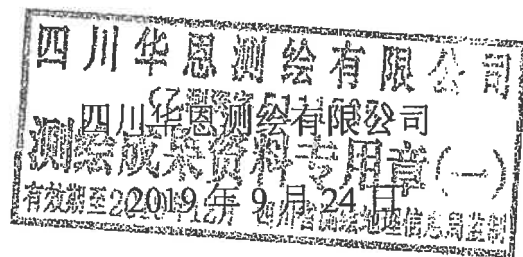 四川华恩测绘有限公司
四川华恩测绘有限公司
测绘成果资料专用章(一)
2019年9月24日
有效期至 四川省测绘地理信息局监制